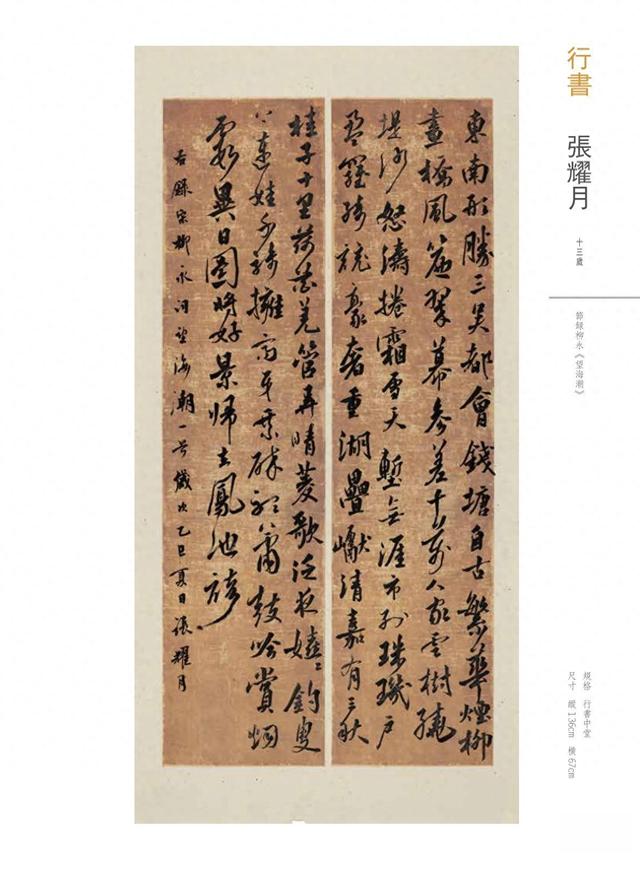 行書
張耀月
十三歲
節録柳永《望海潮》
規格 行書中堂
尺寸 縱136cm 橫67cm
東南形勝三吴都會錢塘自古繁華煙柳
畫橋風簾翠幕參差十萬人家雲樹繞
堤沙怒濤捲霜雪天塹無涯市列珠璣戶
盈羅綺競豪奢重湖疊巘清嘉有三秋
桂子十里荷花羌管弄晴菱歌泛夜嬉〻釣叟
蓮娃千騎擁高牙乘醉聽簫鼓吟賞烟
霞異日圖將好景歸去鳳池誇
右録宋柳永詞望海潮一首歲次乙巳夏日張耀月